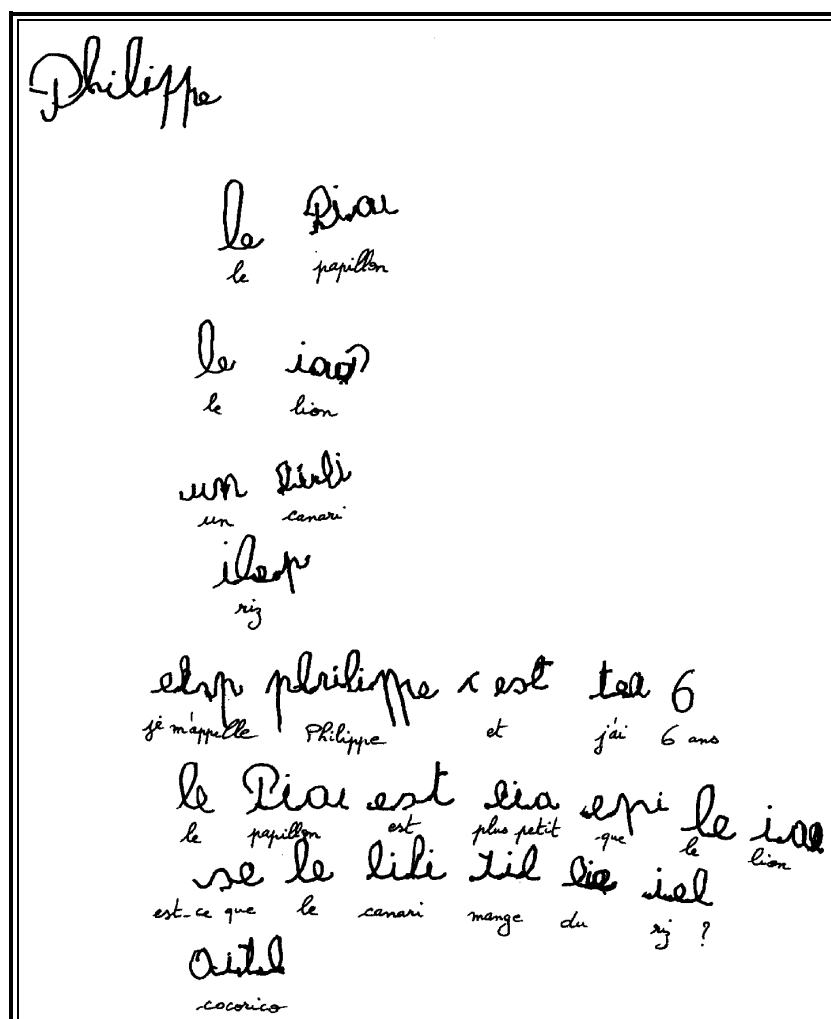 Philippe
le Piou
le papillon
le iao
le lion
un
un canari
ilep
riz
philippe est 6
je m'appelle Philippe et j'ai 6 ans
le Piou est lia epi le iao
le papillon est plus petit que le lion
se le lili til iel
est-ce que le canari mange du riz ?
cocorico